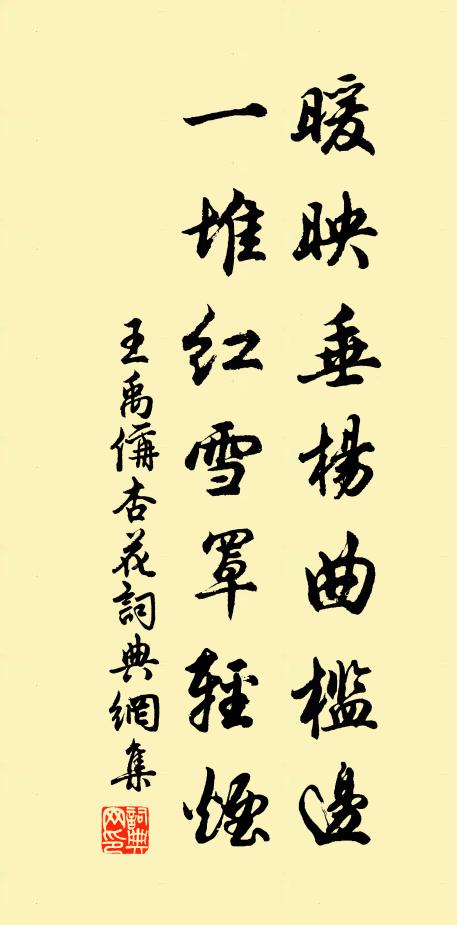 暖映垂楊曲檻邊
一堆紅雪罩輕煙
王禹偁杏花詞典網集
詞典網印